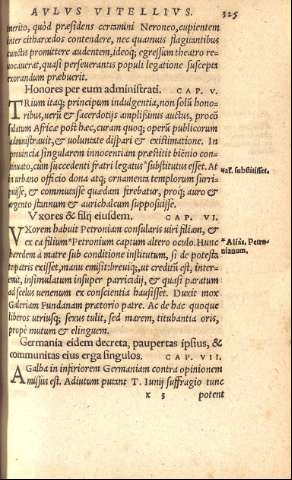 AVLVS VITELLIVS. 325
merito, quòd præsidens certamini Neroneo, cupientem
inter citharœdos contendere, nec quamuis flagitantibus
cunctis promittere audentem, ideoq; egressum theatro re-
uocauerat, quasi perseuerantis populi legatione suscepta
exorandum præbuerit.
Honores per eum administrati. CAP. V.
TRium itaq; principum indulgentia, non solũ hono-
ribus, uerũ & sacerdotijs amplissimis auctus, procō
sulatum Africæ post hæc, curam quoq; operũ publicorum
administrauit, & uoluntate dispari & existimatione. In
prouincia singularem innocentiam præstitit biẽnio con-
tinuato, cum succedenti fratri legatus *substitutus esset. At
in urbano officio dona atq; ornamenta templorum surri-
puisse, & commutasse quædam ferebatur, proq; auro &
argento stannum & aurichalcum supposuisse.
uar. substitisset.
Vxores & filij eiusdem. CAP. VI.
VXorem habuit Petroniam consularis uiri filiam, &
ex ea filium *Petronium captum altero oculo. Hunc
heredem à matre sub conditione institutum, si de potesta
te patris exisset, manu emisit: breuiq;, ut creditũ est, inter-
emit, insimulatum insuper parricidij, & quasi paratum
ad scelus uenenum ex conscientia hausisset. Duxit mox
Galeriam Fundanam prætorio patre. Ac de hac quoque
liberos utriusq; sexus tulit, sed marem, titubantia oris,
propè mutum & elinguem.
*Aliâs, Petro-
nianum.
Germania eidem decreta, paupertas ipsius, &
communitas eius erga singulos. CAP. VII.
A Galba in inferiorem Germaniam contra opinionem
missus est. Adiutum putant T. Iunij suffragio tunc
x 3 potent